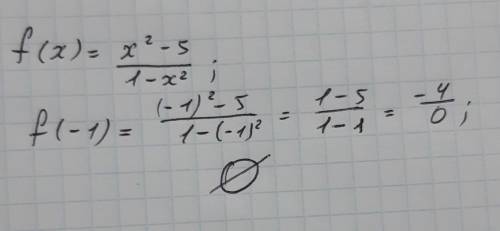 f(x) = (x² - 5)/(1 - x²);
f(-1) = ((-1)² - 5)/(1 - (-1)²) = (1 - 5)/(1 - 1) = (-4)/0;
∅